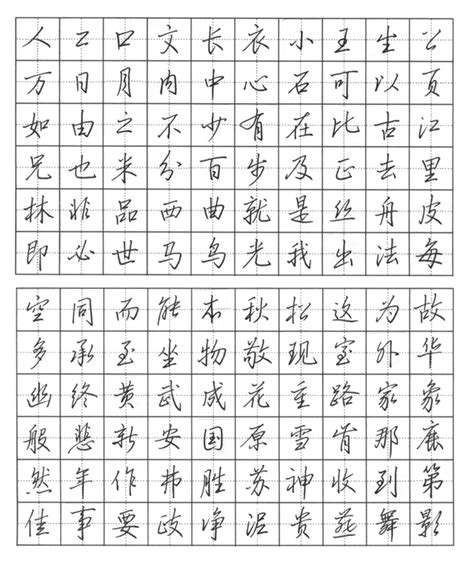 人工口文长衣小王生公
万日月肉中心石可以页
如由之不少有在比古江
兄也米分百步及正去里
林非品西曲就是丝舟皮
即必世马鸟光我出法每
空同而能本秋松这为故
多承至坐物敬现室外华
幽终黄武咸花重路家象
般悲新安国原雪肯那鹿
然年作弗胜苏神收到第
佳事要歧净泥贵燕舞影